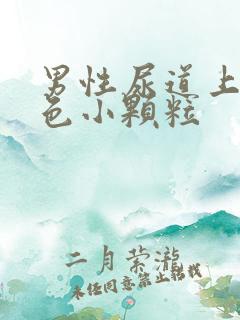 男性尿道上
色小颗粒
二月萦泷
未经同意禁止转载